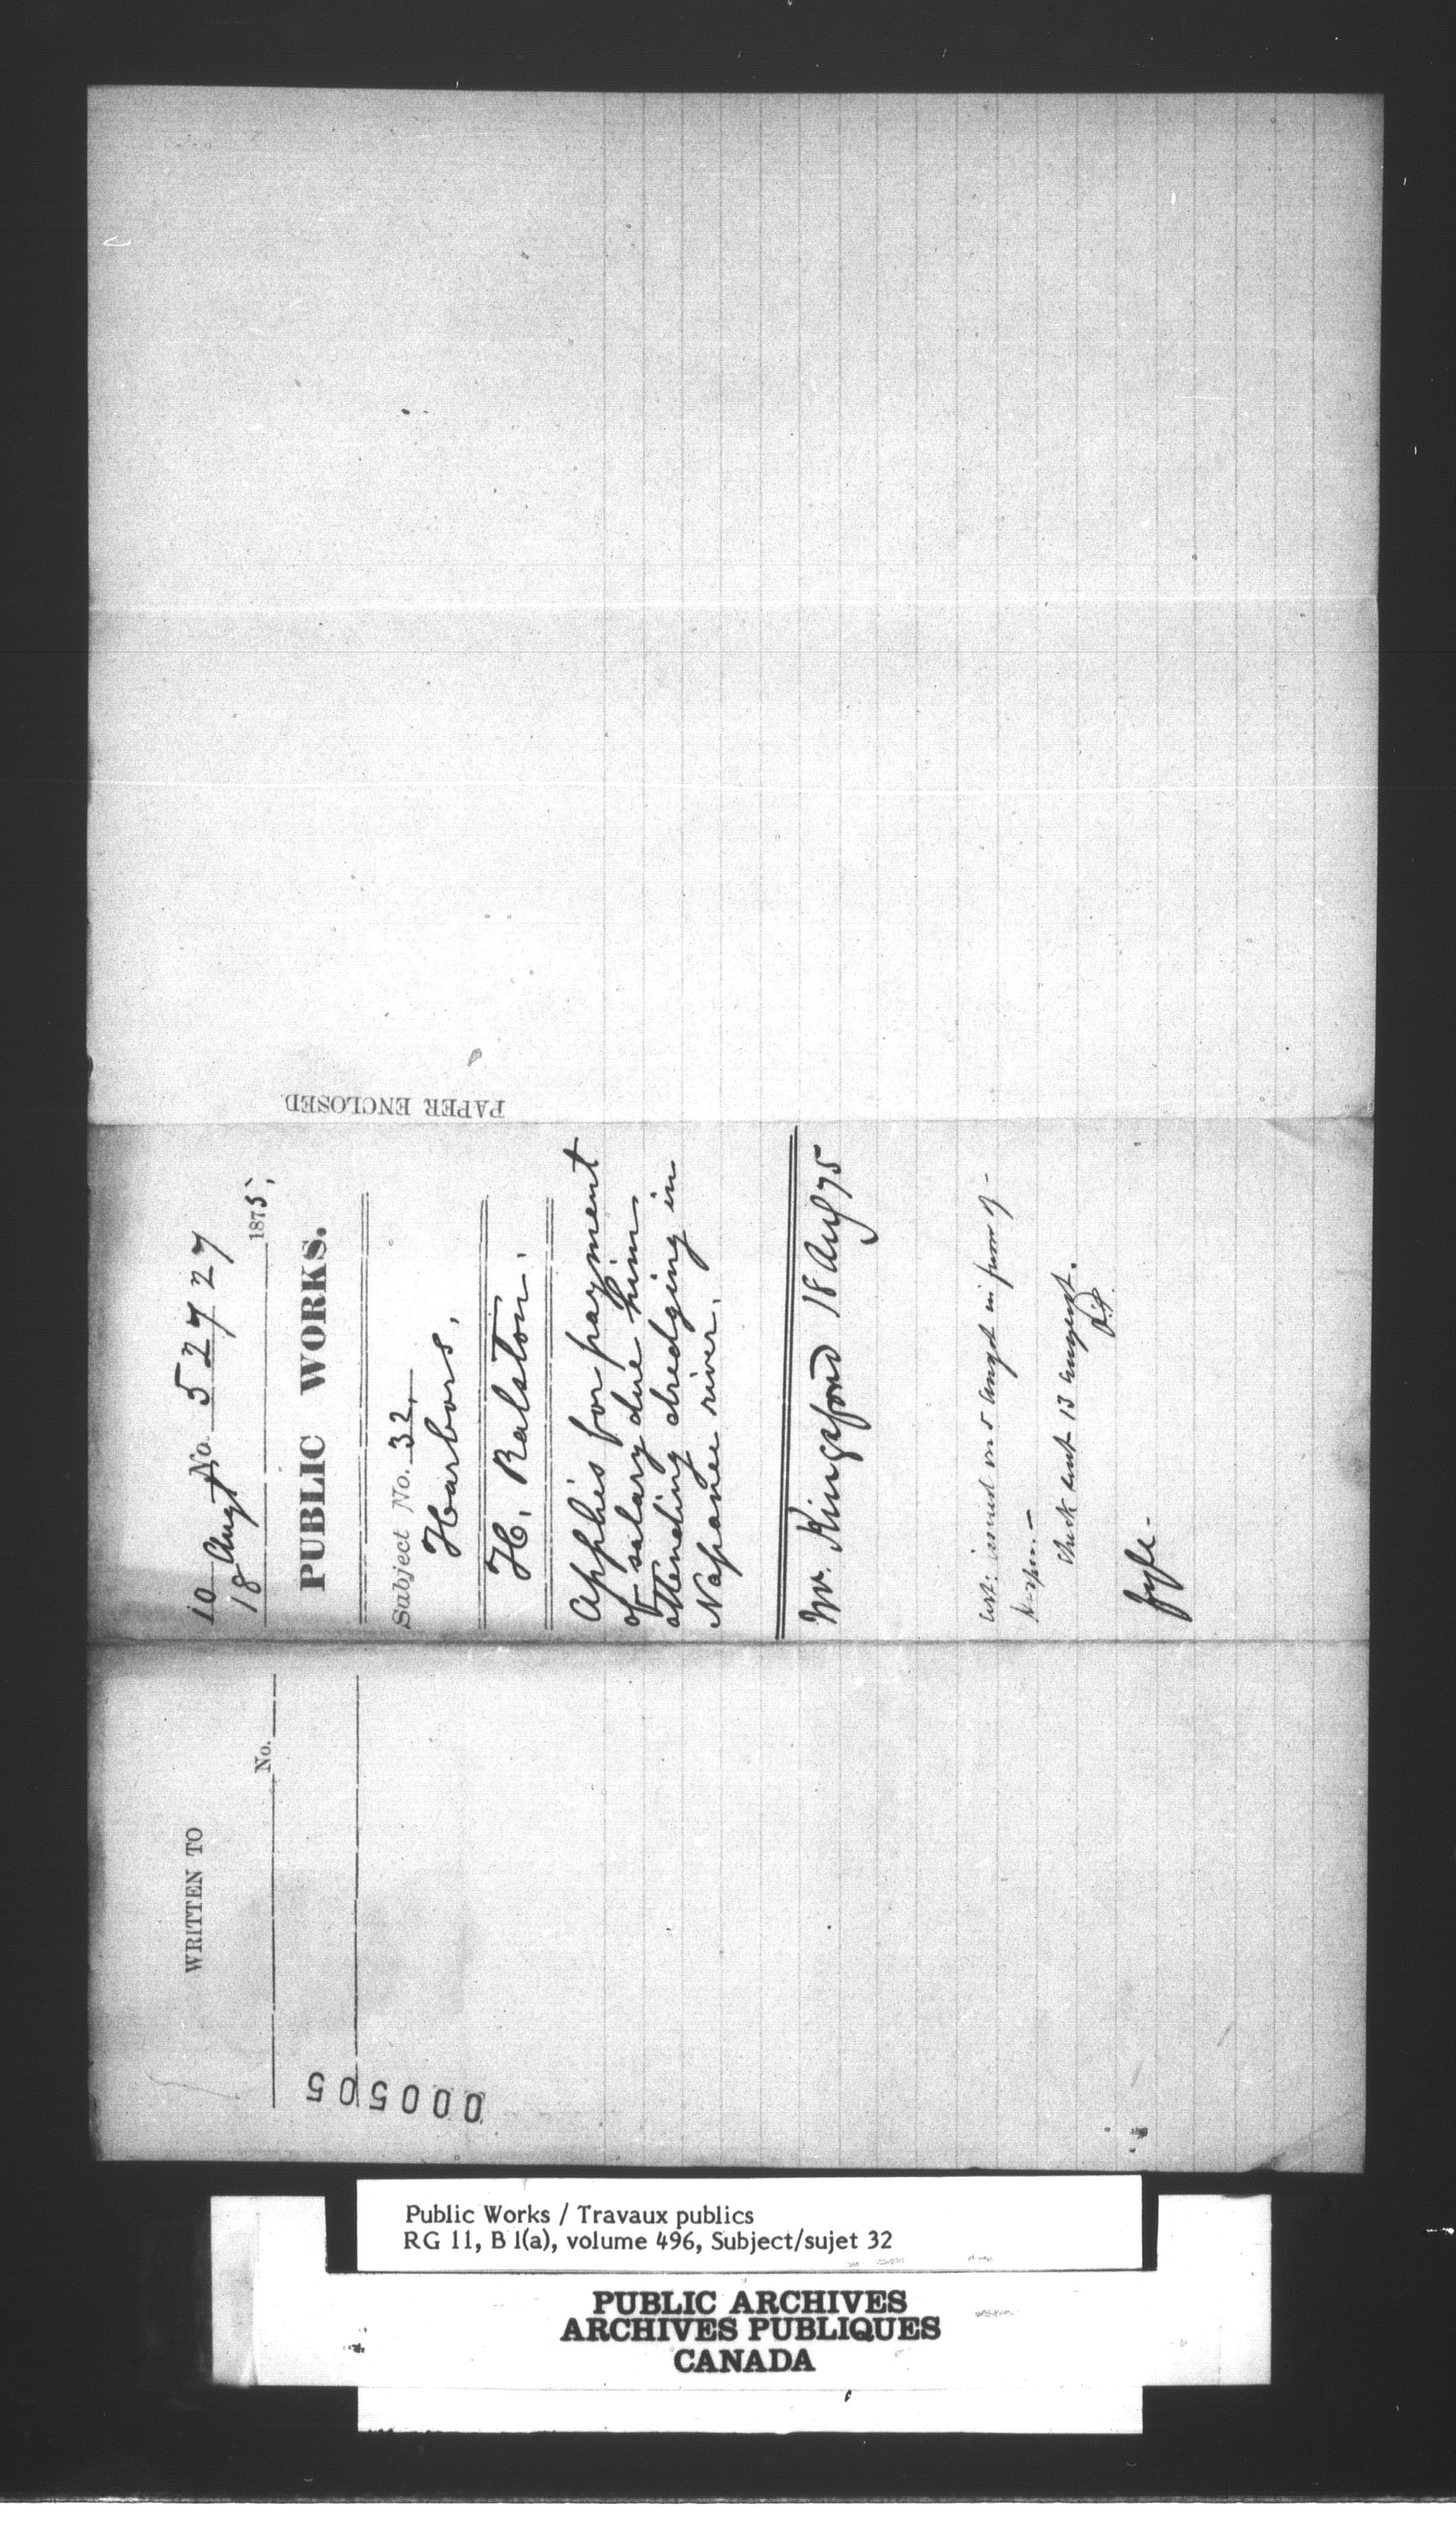 10 No. 52727
18 Augt 1875,
PUBLIC WORKS.
Subject No. 32,
Harbors,
H. Ralston.
Applies for payment
of salary due him
attending dredging in
Napanee river.
Mr. Kingsford 18 Aug 75
issued on 5 augst in favor of
sent 13 augugst.
fyle -
PAPER ENCLOSED
WRITTEN TO
No.
000505
Public Works / Travaux publics
RG 11, B 1(a), volume 496, Subject/sujet 32
PUBLIC ARCHIVES
ARCHIVES PUBLIQUES
CANADA